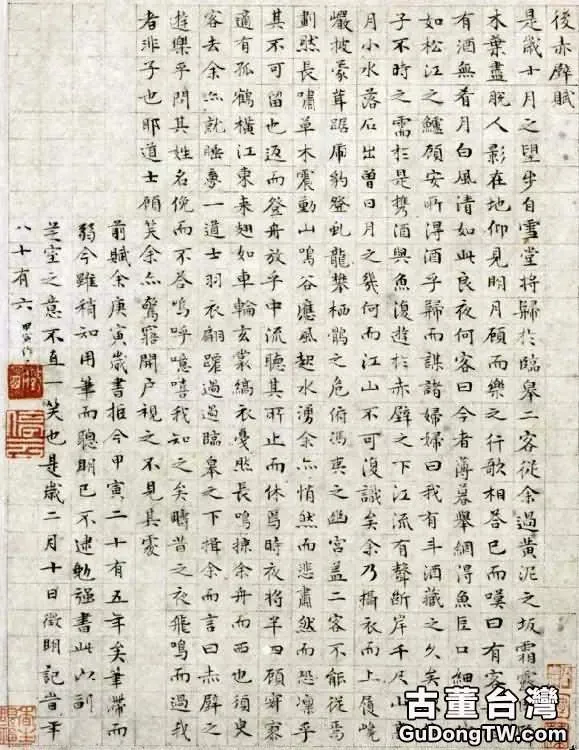 後赤壁賦
是歲十月之望步自雪堂將歸於臨皋二客從余過黃泥之坂霜露
木葉盡脫人影在地仰見明月顧而樂之行歌相答已而嘆曰有客
有酒無肴月白風清如此良夜何客曰今者薄暮舉網得魚巨口細
如松江之鱸顧安所得酒乎歸而謀諸婦婦曰我有斗酒藏之久矣
子不時之需於是攜酒與魚復遊於赤壁之下江流有聲斷岸千尺山
月小水落石出曾日月之幾何而江山不可復識矣余乃攝衣而上履巉
巖披蒙茸踞虎豹登虬龍攀栖鶻之危俯馮夷之幽宮蓋二客不能從焉
劃然長嘯草木震動山鳴谷應風起水湧余亦悄然而悲肅然而恐凜乎
其不可留也返而登舟放乎中流聽其所止而休焉時夜將半四顧寂寥
適有孤鶴橫江東來翅如車輪玄裳縞衣戛然長鳴掠余舟而西也須臾
客去余亦就睡夢一道士羽衣翩躚過臨皋之下揖余而言曰赤壁之
遊樂乎問其姓名俛而不答嗚呼噫嘻我知之矣疇昔之夜飛鳴而過我
者非子也耶道士顧笑余亦驚寤開戶視之不見其處
前賦余庚寅歲書拒今甲寅二十有五年矣筆滯而
弱今雖稍知用筆而聰明已不逮勉強書此以副
芝室之意不直一笑也是歲二月十日徵明記時年
八十有六
古董台灣
GuDongTW.com